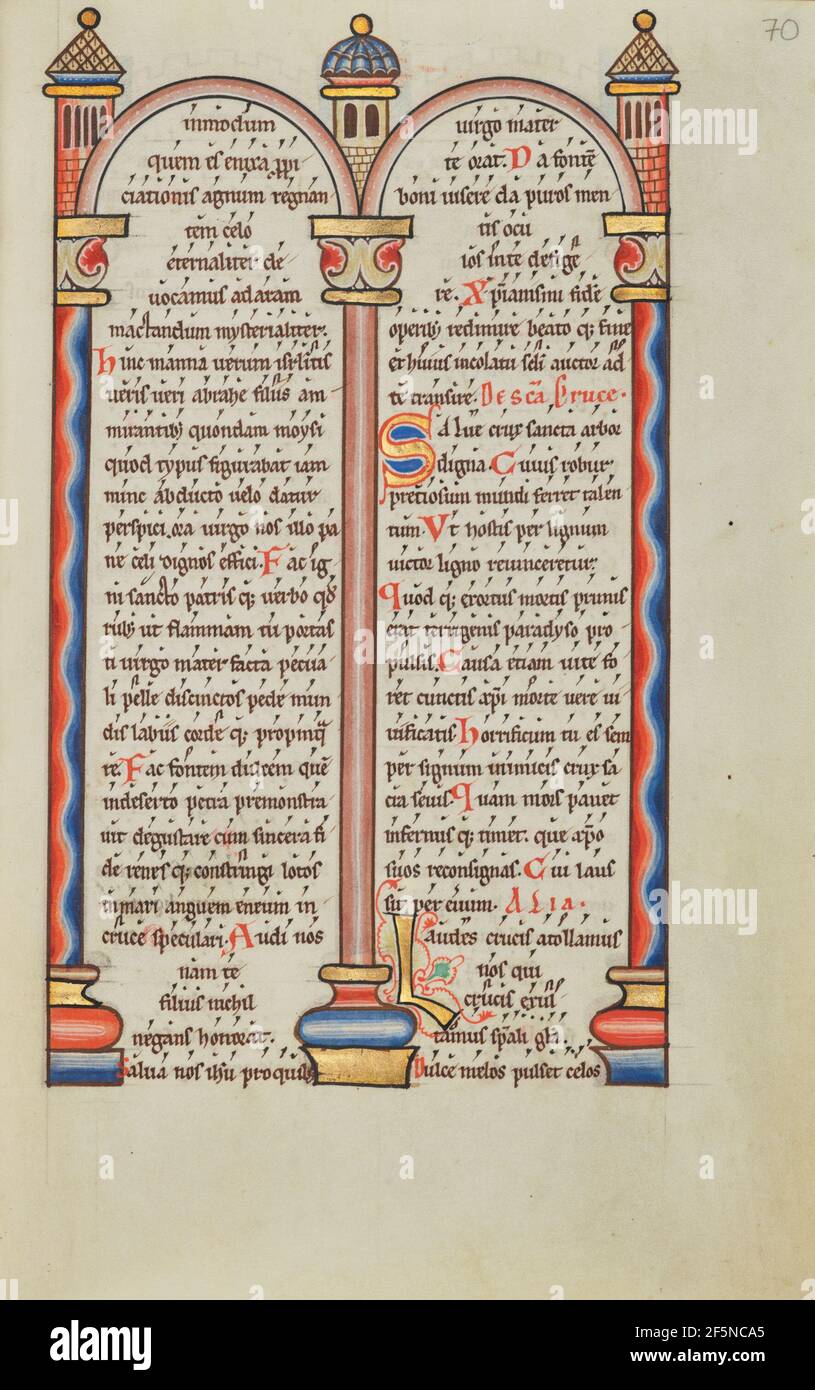 70
in modum
quem es enixa ppi
ciationis agnum regnan
tem celo
eternaliter de
uocamus ad aram
mactandum mysterialiter.
Hinc manna uerum isrlitis
ueris ueri abrahe filius am
mirantib; quondam moysi
quod typus figurabat iam
nunc abducto uelo datur
perspici. ora uirgo nos illo pa
ne celi dignos effici. Fac ig
ni sancto patris q; uerbo qd
rub; ut flammam tu portas
ti uirgo mater facta pecua
li pelle discinctos pede mun
dis labiis corde q; propinq
re. Fac fontem dulcem que
in deserto petra premonstra
uit degustare cum sincera fi
de renes q; constringi lotos
in mari anguem eneum in
cruce speculari. Audi nos
nam te
filius nichil
negans honorat.
Salua nos ihu pro quib;
uirgo mater
te orat. Da fonte
boni uisere da puros men
tis ocu
los in te defige
re. Xpianismi fide
operib; redimire beato q; fine
ex huius incolatu scli auctor ad
te transire. De sca Cruce.
Salue crux sancta arbor
digna. Cuius robur
preciosum mundi ferret talen
tum. Vt hostis per lignum
uictor ligno reuinceretur.
Quod q; exortus mortis primis
erat terrigenis paradyso pro
pulsis. Causa etiam uite fo
ret cunctis xpi morte uere ui
uificatis. Horrificum tu es sem
per signum inimicis crux sa
cra seuis. Quam mors pauet
infernus q; timet. que xpo
suos reconsignas. Cui laus
sit per euum. ALIA.
Laudes crucis attollamus
nos qui
crucis exul
tamus spali gla.
Dulce melos pulset celos
alamy
Image ID: 2F5NCA5
www.alamy.com